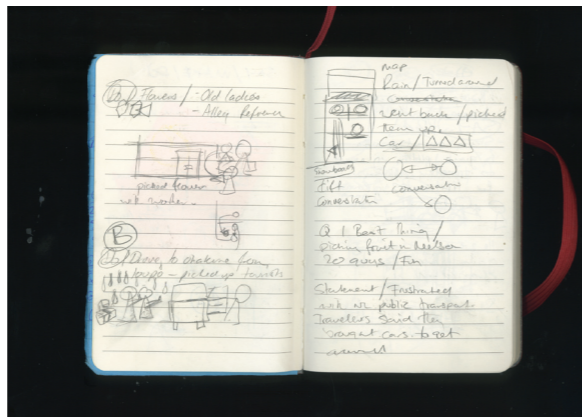 Flowers / - Old ladies
- Alley Reference
picked flower
B
Drove to
- picked up tourists
MAP
Rain / Turned around
went back / picked
them up
Car /
Snowboards
Gift
Conversation
conversation
Q | Best Thing /
picking fruit in Nelson
20 guys / Fun
Statement / Frustrated
public transport
Travellers said they
brought cars to get
around